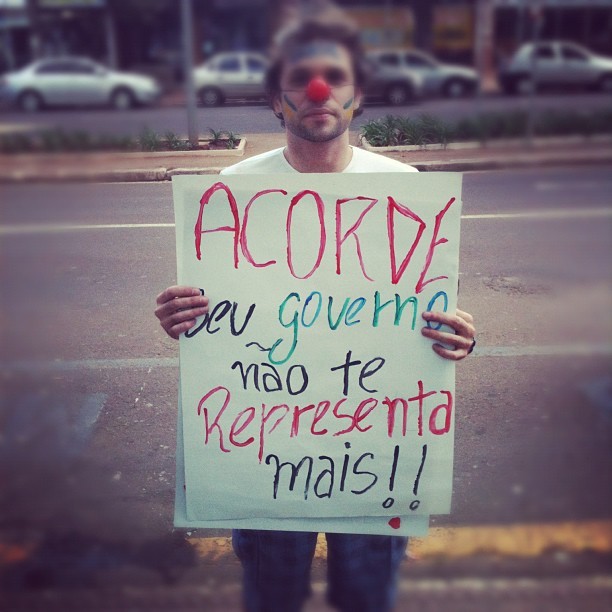 ACORDE
seu governo
não te
Representa
mais!!